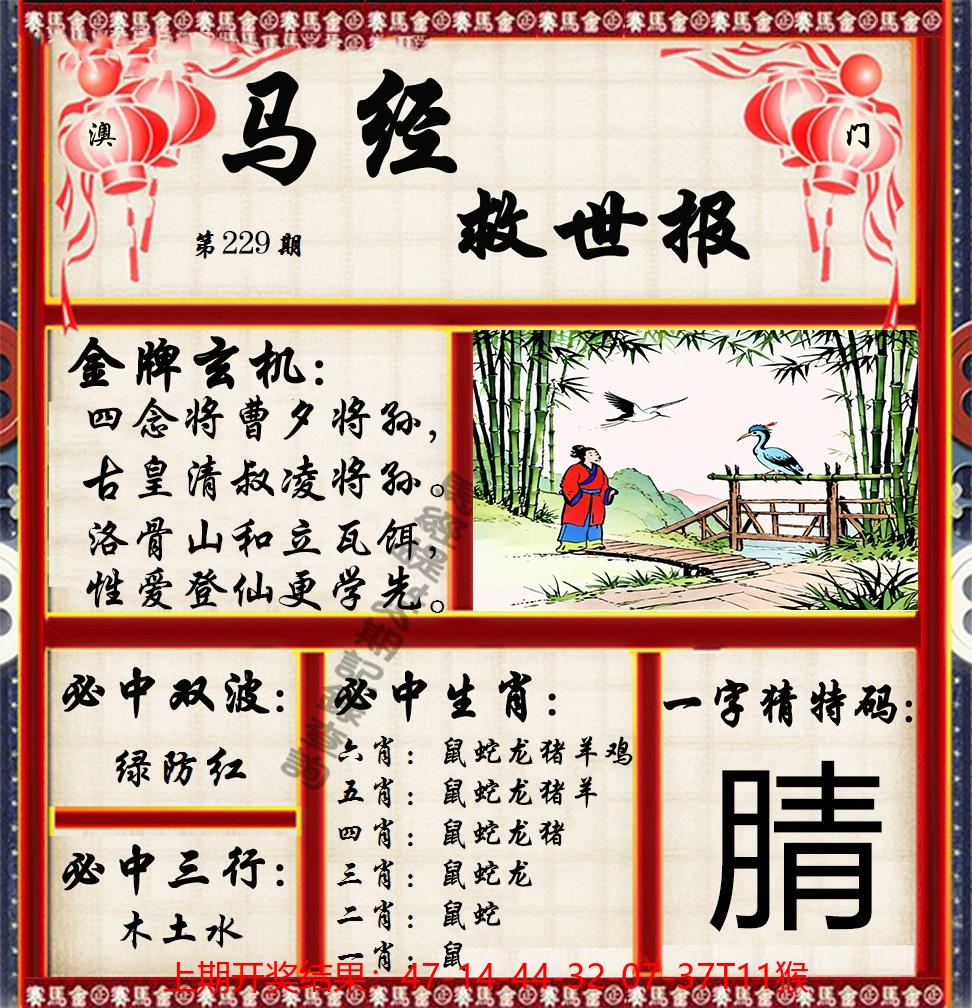 澳
门
马经
救世报
第229期
金牌玄机：
四念将曹夕将孙，
古皇清叔凌将孙。
洛骨山和立瓦饵，
性爱登仙更学先。
必中双波：
绿防红
必中三行：
木土水
必中生肖：
六肖：鼠蛇龙猪羊鸡
五肖：鼠蛇龙猪羊
四肖：鼠蛇龙猪
三肖：鼠蛇龙
二肖：鼠蛇
一肖：鼠
一字猜特码：
腈
上期开奖结果：47-14-44-32-07-37T11猴